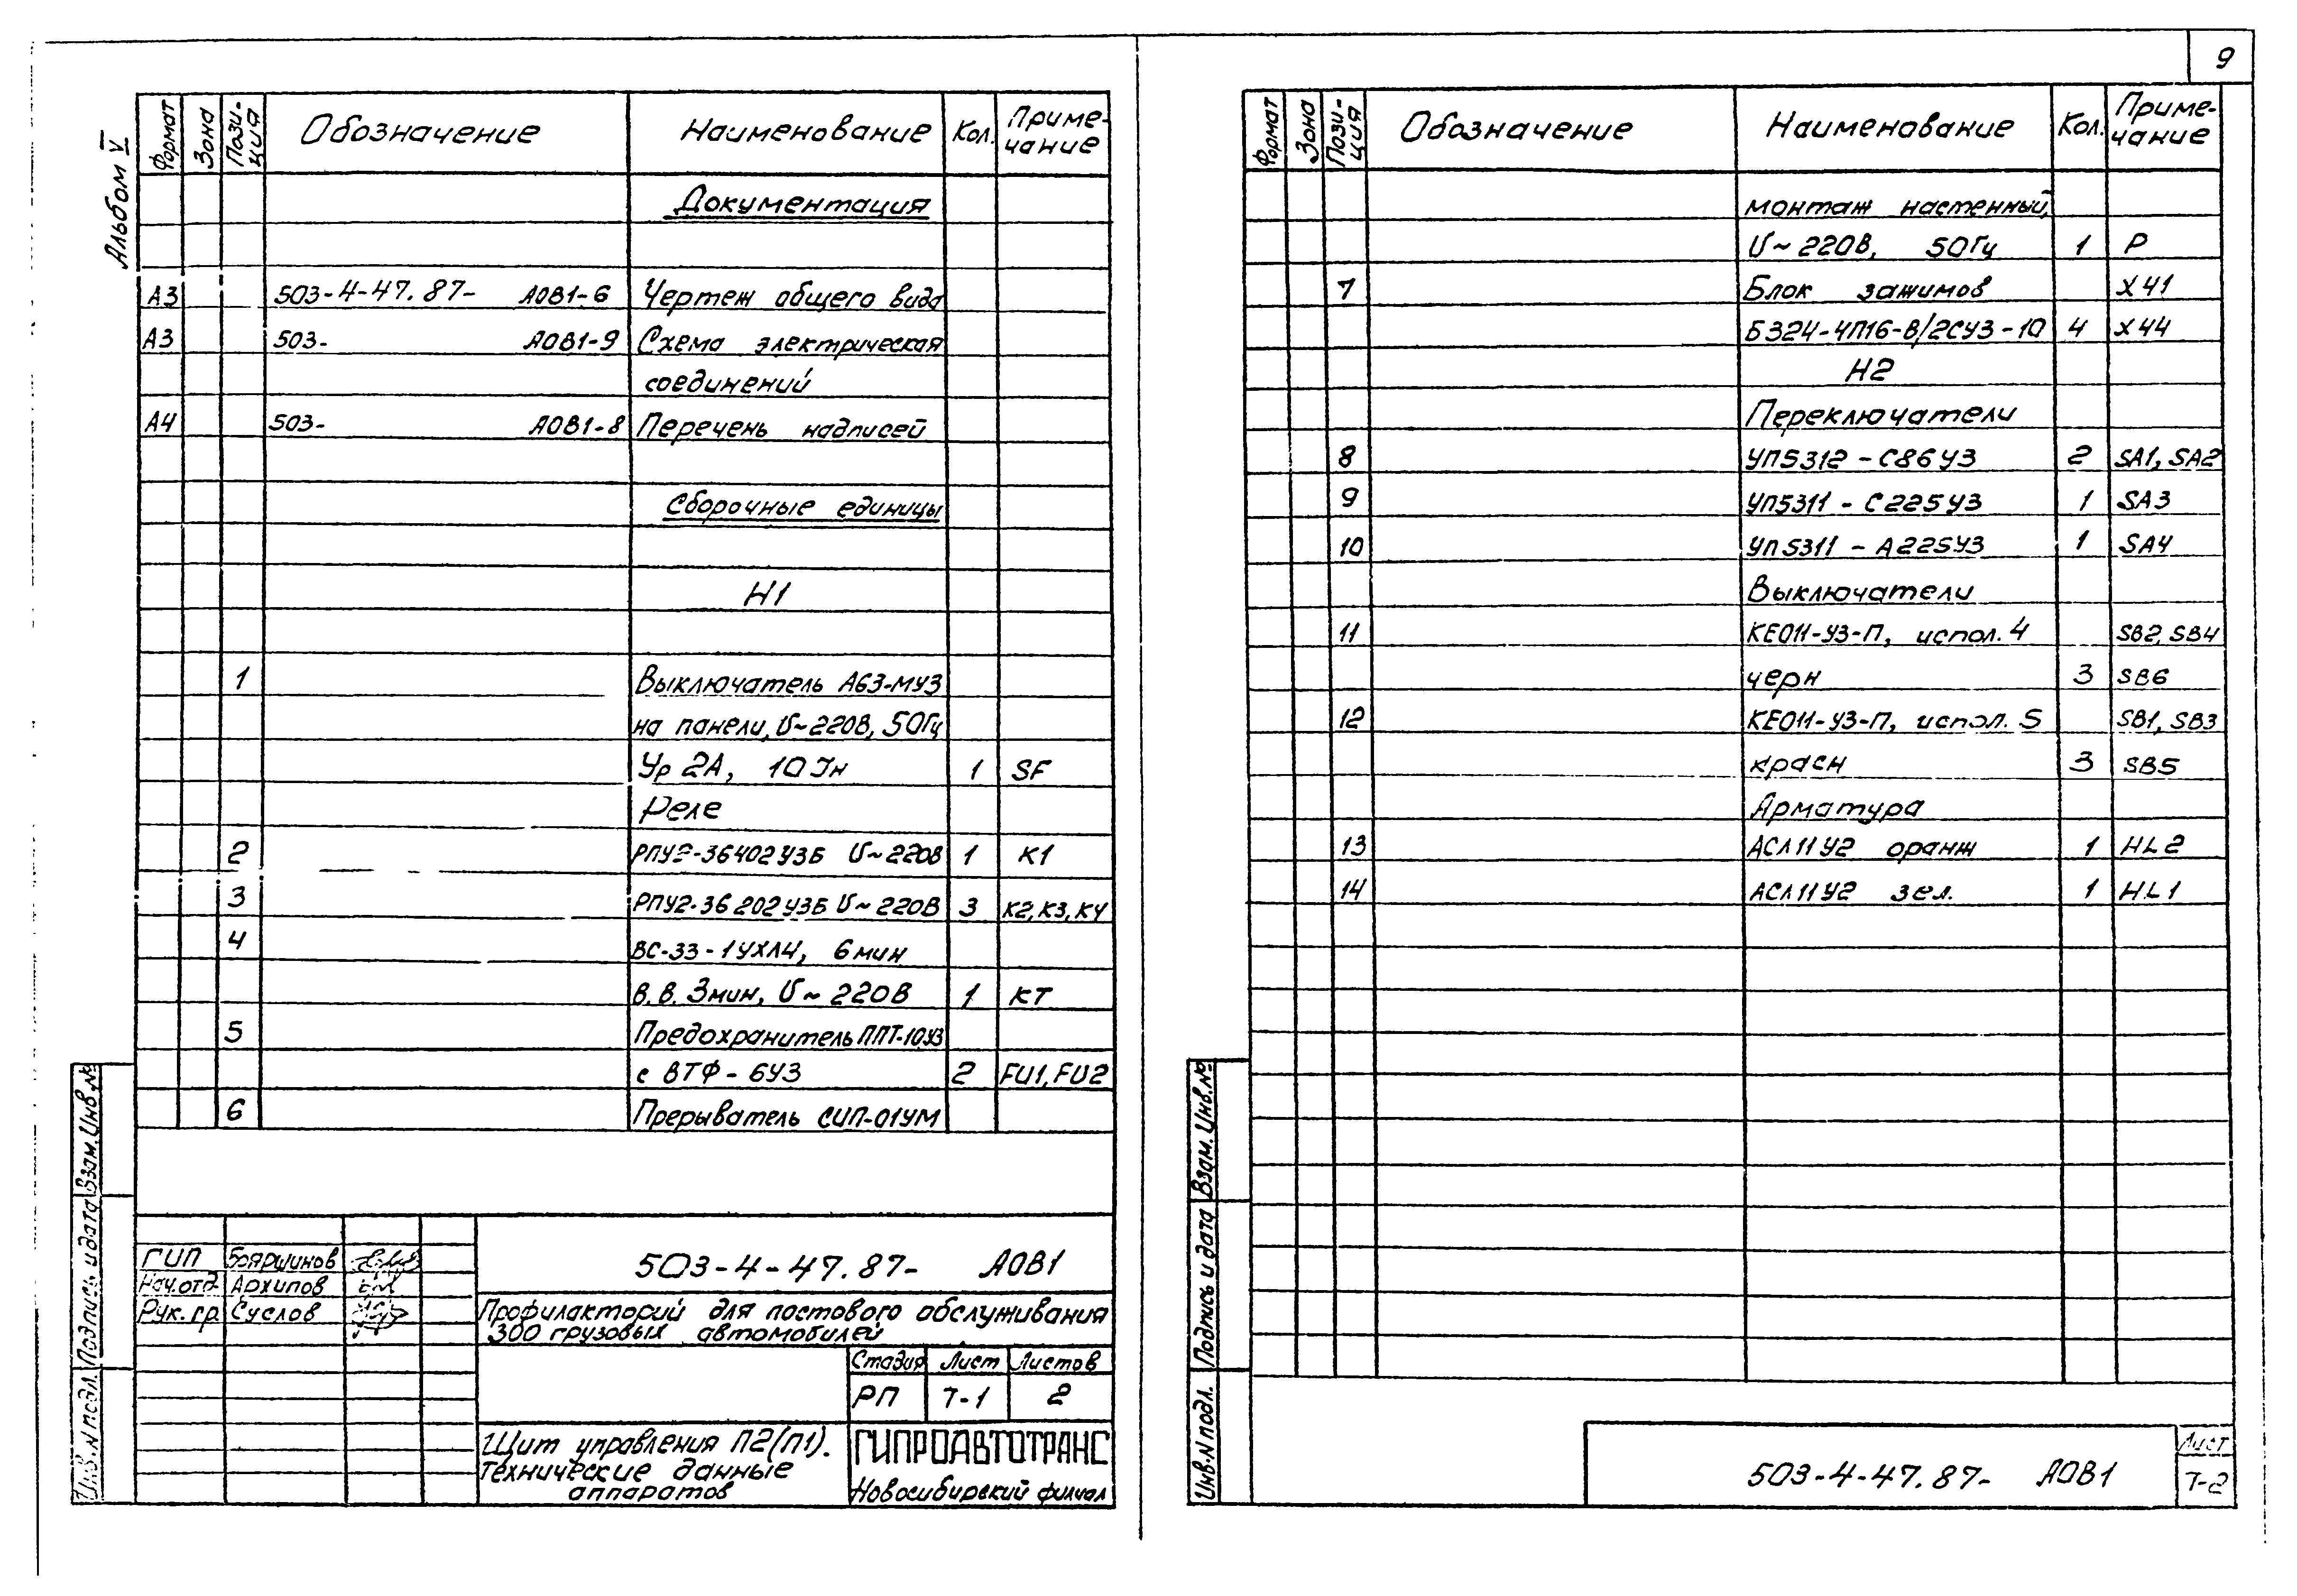 9
Альбом V
Формат Зона Пози-ция Обозначение Наименование Кол. Приме-чание
Документация
А3 503-4-47.87- АОВ1-6 Чертеж общего вида
А3 503- АОВ1-9 Схема электрическая
соединений
А4 503- АОВ1-8 Перечень надписей
Сборочные единицы
Н1
1 Выключатель А63-МУ3
на панели, U~220В, 50Гц
Ур 2А, 10 Iн 1 SF
Реле
2 РПУ2-36402У3Б U~220В 1 К1
3 РПУ2-36202У3Б U~220В 3 К2, К3, К4
4 ВС-33-1УХЛ4, 6мин
в.в. 3мин, U~220В 1 КТ
5 Предохранитель ППТ-10У3
с ВТФ-6У3 2 FU1, FU2
6 Прерыватель СИП-01УМ
Взам. Инв. №
Подпись и дата
Инв. N подл.
ГИП Бояршинов
Нач. отд. Архипов
Рук. гр. Суслов
503-4-47.87- АОВ1
Профилакторий для постового обслуживания
300 грузовых автомобилей
Стадия Лист Листов
РП 7-1 2
Щит управления П2(П1).
Технические данные
аппаратов
ГИПРОАВТОТРАНС
Новосибирский филиал
Формат Зона Пози-ция Обозначение Наименование Кол. Приме-чание
монтаж настенный,
U~220В, 50Гц 1 Р
7 Блок зажимов Х41
Б324-4П16-В/2СУ3-10 4 Х44
Н2
Переключатели
8 УП5312-С86У3 2 SA1, SA2
9 УП5311-С225У3 1 SA3
10 УП5311-А225У3 1 SA4
Выключатели
11 КЕ011-У3-П, испол. 4 SB2, SB4
черн 3 SB6
12 КЕ011-У3-П, испол. 5 SB1, SB3
красн 3 SB5
Арматура
13 АСЛ11У2 оранж 1 HL2
14 АСЛ11У2 зел. 1 HL1
Взам. Инв. №
Подпись и дата
Инв. N подл.
503-4-47.87- АОВ1
Лист
7-2